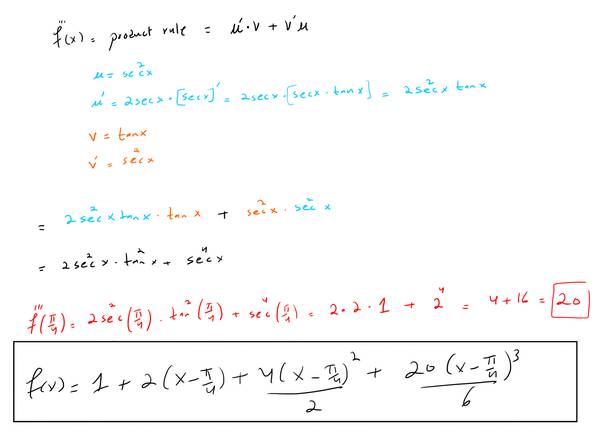 f'''(x) = product rule = u'·v + v'u
u = sec²x
u' = 2secx·[secx]' = 2secx·[secx·tanx] = 2sec²x tanx
v = tanx
v' = sec²x
= 2sec²x tanx·tanx + sec²x·sec²x
= 2sec²x·tan²x + sec⁴x
f'''(π/4) = 2sec²(π/4)·tan²(π/4) + sec⁴(π/4) = 2·2·1 + 2⁴ = 4+16 = 20
f(x) = 1 + 2(x-π/4) + 4(x-π/4)²/2 + 20(x-π/4)³/6